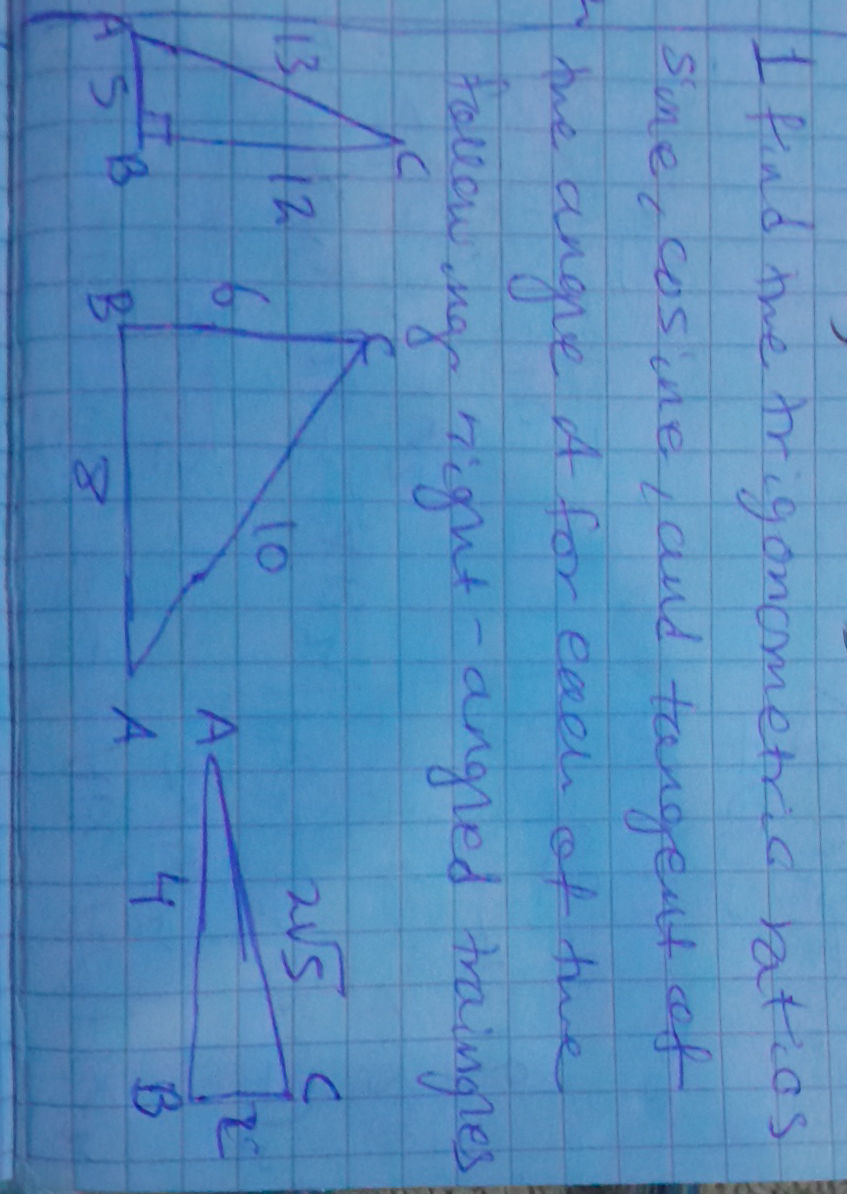 1 find the trigonometric ratios
sine, cosine, and tangent of
the angle A for each of the
following right-angled traingles
A 13 C 12 B 5
B 6 C 10 A 8
A 2√5 C 2 B 4